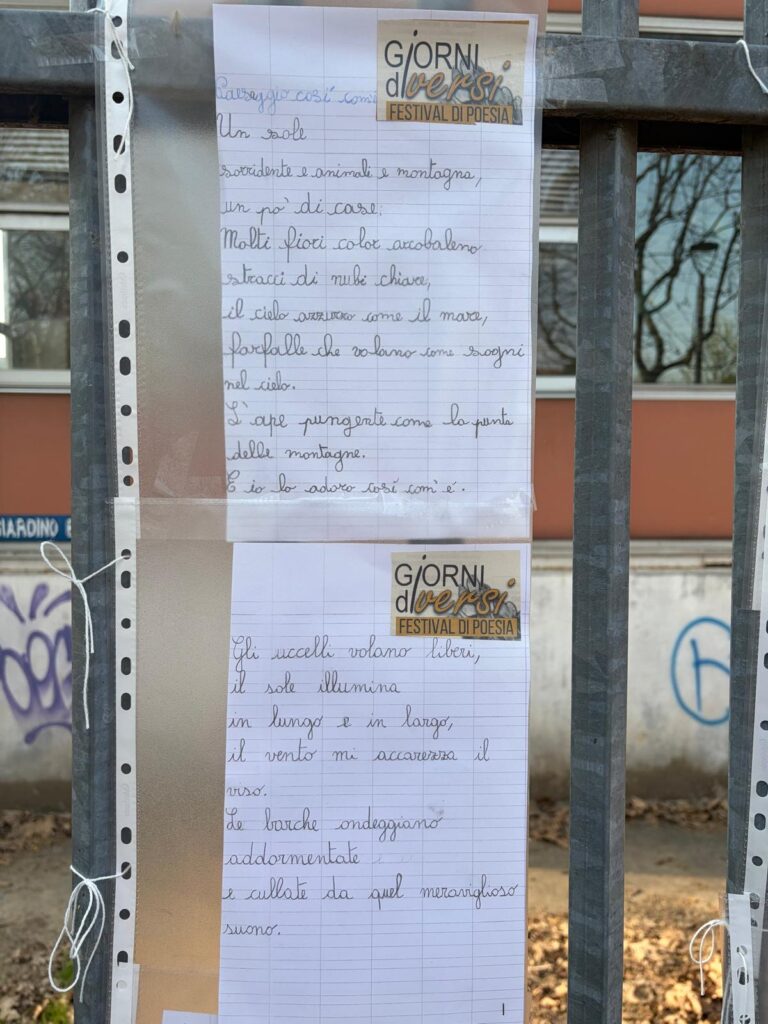 GiORNI
diversi
FESTIVAL DI POESIA
Paesaggio così com'
Un sole
sorridente e animali e montagna,
un po' di case.
Molti fiori color arcobaleno
stracci di nubi chiare,
il cielo azzurro come il mare,
farfalle che volano come sogni
nel cielo.
L'ape pungente come la punta
delle montagne.
E io lo adoro così com'é.
GIARDINO
GiORNI
diversi
FESTIVAL DI POESIA
Gli uccelli volano liberi,
il sole illumina
in lungo e in largo,
il vento mi accarezza il
viso.
Le barche ondeggiano
addormentate
e cullate da quel meraviglioso
suono.